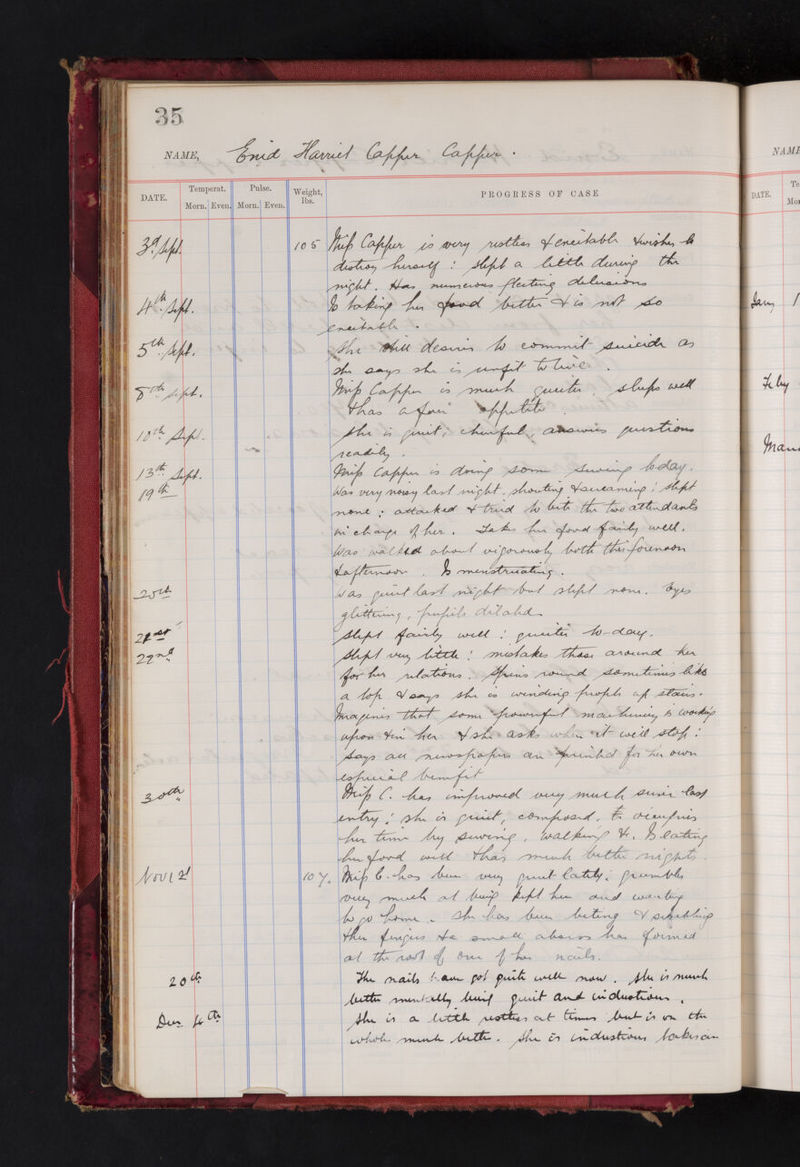 35
NAME, Enid Harriet Capper Capper.
DATE. Temperat. Pulse. Weight, lbs. PROGRESS OF CASE
Morn. Even. Morn. Even.
3d Sept. 105 Miss Capper is very restless & excitable & wishes to
destroy herself : slept a little during the
night. Has numerous fleeting delusions
4th Sept. Is taking her food better & is not so
excitable.
5th Sept. She still desires to commit suicide as
she says she is unfit to live.
8th Sept. Miss Capper is much quieter, sleeps well
& has a fair appetite.
10th Sept. She is quiet, cheerful, answers questions
readily.
13th Sept. Miss Capper is doing some sewing today.
19th Was very noisy last night, shouting & screaming : slept
none : attacked & tried to bite the two attendants
in charge of her. Takes her food fairly well.
Was walked about vigorously both this forenoon
& afternoon. Is menstruating.
20th Was quiet last night but slept none. Eyes
glittering, pupils dilated.
21st Slept fairly well : quieter to-day.
22nd Slept very little : mistakes those around her
for her relations. Spins round sometimes like
a top & says she is winding people up stairs.
Imagines that some powerful machinery is working
upon & in her & she asks when it will stop :
says all newspapers are printed for her own
especial benefit
30th Miss C. has improved very much since last
entry : she is quiet, composed, & occupies
her time by sewing, walking &c. Is eating
her food well & has much better nights.
Nov 12d 107. Miss C. has been very quiet lately : grumbles
very much at being kept here and wanting
to go home. She has been biting &
her fingers & a small abscess has formed
at the root of one of her nails.
20th The nails have got quite well now. She is much
better mentally being quiet and industrious.
Dec 4th She is a little restless at times but is on the
whole much better. She is industrious
NAME
DATE. Te
Mor
Jany 1
Feby